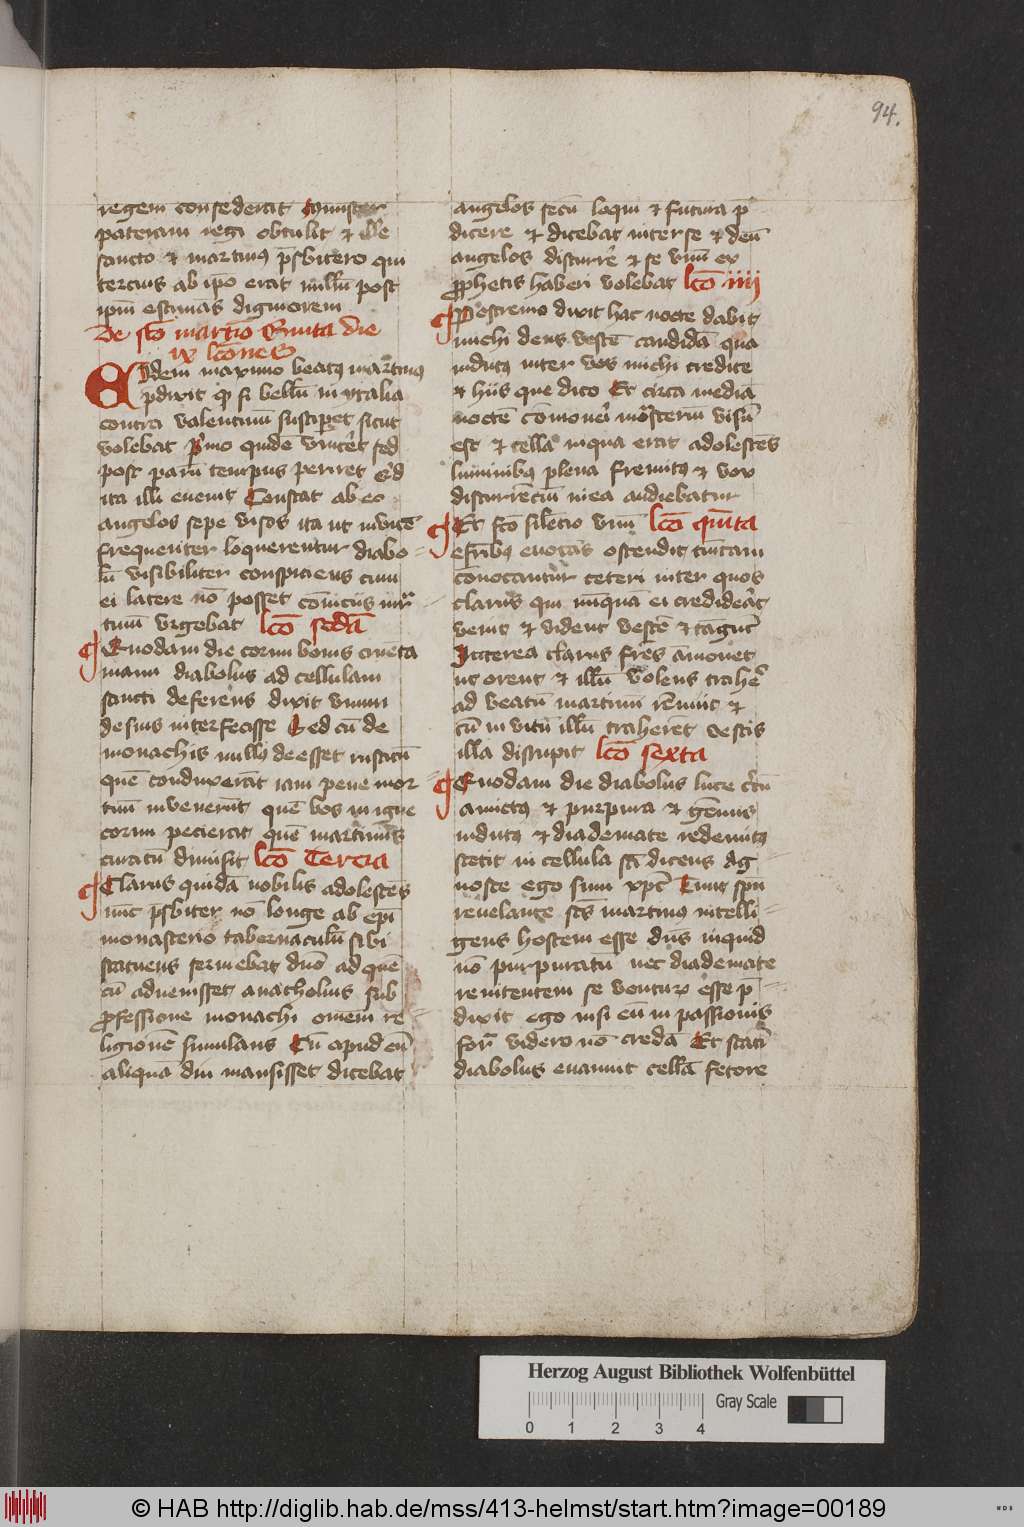 94.
regem consederat Minister
pateram regi obtulit et ille
sancto et martinꝯ p̄sbitero qui
tercius ab ip̄o erat nullū post
ip̄m estimās digniorem
De sc̄o martīo Quīta die
ix lc̄ones
Eidem maximo beatꝯ martinꝯ
p̄dixit si bellū in ytalia
contra valentinū susciperet sicut
volebat p̄mo quidē vinceret sed
post parū tempus periret Qd
ita illi euenit Constat ab eo
angelos sepe visos ita ut inuicē
frequenter loquerentur diabo-
lū visibiliter conspiciens cum
ei latere nō posset cōuiciis mar-
tinū vrgebat lc̄o sc̄dā
Quodam die cornu bouis cruēta
manu diabolus ad cellulam
sancti deferens dixit vnum
de suis interfecisse Sed cū de
monachis nullꝯ deesset rusticū
quē conduxerāt iam pene mor-
tuū inuenerūt quē bos in igne
cornu pecierat quē martinus
curatū dimisit lc̄o Tercia
Clarus quidā nobilis adolescēs
nūc p̄sbiter nō longe ab epī
monasterio tabernaculū sibi
statuens seruiebat dn̄o ad quē
cū aduenisset anatholius sub
ꝓfessione monachi omēm re-
ligionē simulans Cū apud eū
aliquā diu mansisset dicebat
angelos secū loqui et futura p̄-
dicere et dicebat inter se et deū
angelos discurrē et se vnū ex
ꝓphetis haberi volebat lc̄o iiij
Postremo dixit hac nocte dabit
michi deus vestē candidā qua
indutꝯ inter vos michi credite
et hiis que dico Et circa mediā
noctē cōmoueri mōsterium visū
est et cella in qua erat adolescēs
luminibꝯ plena fremitꝯ et vox
discurrēciū in ea audiebatur
Et fc̄o silēcio vnū lc̄o quīta
e fr̄ibꝯ euocās ostendit tūicam
cōuocantur ceteri inter quos
clarus qui nūquā ei credideāt
venit et vident vestē et tāgūt
Interea clarus fr̄es āmonet
ut orent et illū volens trahē
ad beatū martinū rēnuit et
cū in vitū illū traherēt vestis
illa disrupit lc̄o sexta
Quodam die diabolus luce
amictꝯ et purpura et gēmis
indutꝯ et diademate redemitꝯ
stetit in cellula sc̄i dicens Ag-
nosce ego sum xpc̄ Tunc spū
reuelante sc̄s martinꝯ intelli-
gens hostem esse dn̄s inquid
nō purpuratū nec diademate
renitentem se venturꝫ esse p̄-
dixit ego nisi eū in passionis
forā videro nō credā Et statī
diabolus euanuit cellā fetore
Herzog August Bibliothek Wolfenbüttel
Gray Scale
0 1 2 3 4
© HAB http://diglib.hab.de/mss/413-helmst/start.htm?image=00189
WDB